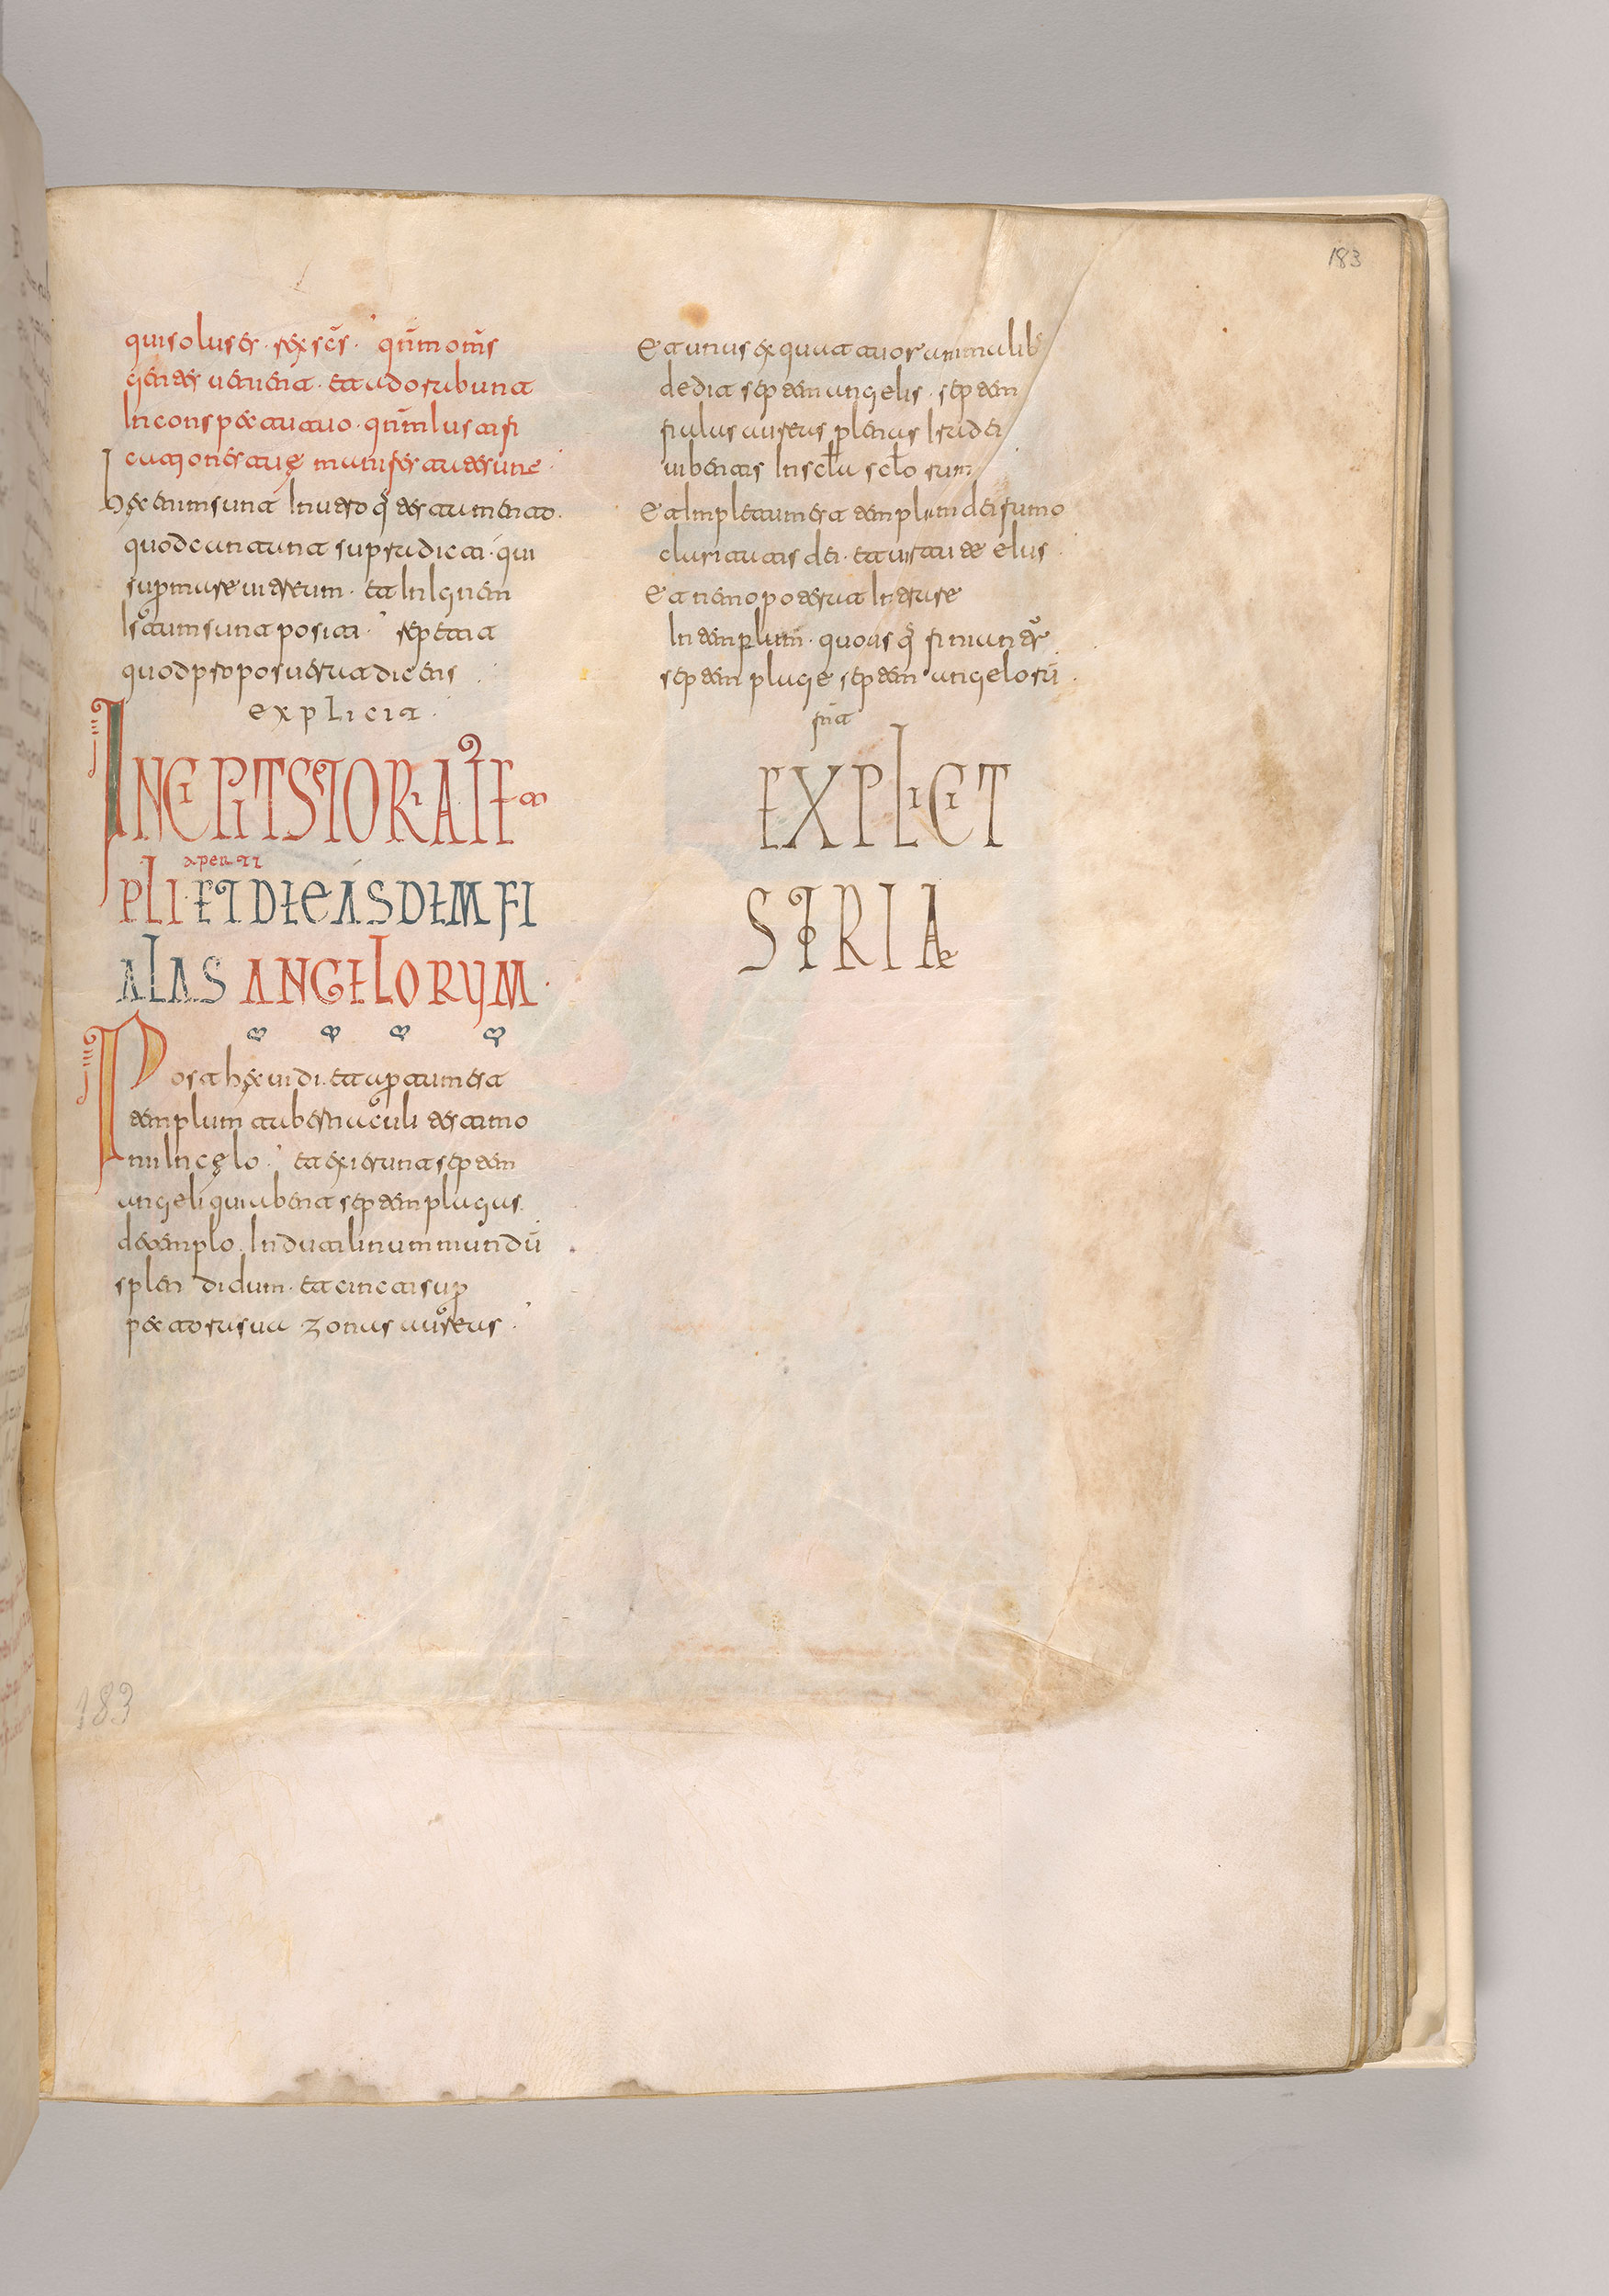 183
qui solus es. rex scs. qnm oms
gentes uenient. et adorabunt
In conspectu tuo. qnm Iustifi
cationes tue manifestate sunt.
hec enim sunt In utroq testamento.
quod cuncta supra dicti. qui
supra mare uitreum. et In Ignem
Istum sunt positi. repetit
quod preposuerat dicens.
explicit.
INCIPIT STORIA TEm
PLI aperti ET DE EASDEM FI
ALAS ANGELORUM.
Post hec uidi. et apertum est
templum tabernaculi testimo
nii In celo. et exierunt septem
angeli qui abent septem plagas.
de templo. Induti linum mundū
splendidum. et cincti super
pectora sua zonas aureas.
Et unus ex quattuor animalib
dedit septem angelis. septem
fialas aureas plenas Ira dei
uibentis In scla sclorum
Et Impletum est templum dei fumo
claritatis dei. et uirtute eius.
Et nemo poterat Intrare
In templum. quousq finiantur
septem plage septem angelorū.
fnt
EXPLICIT
STRIA
183